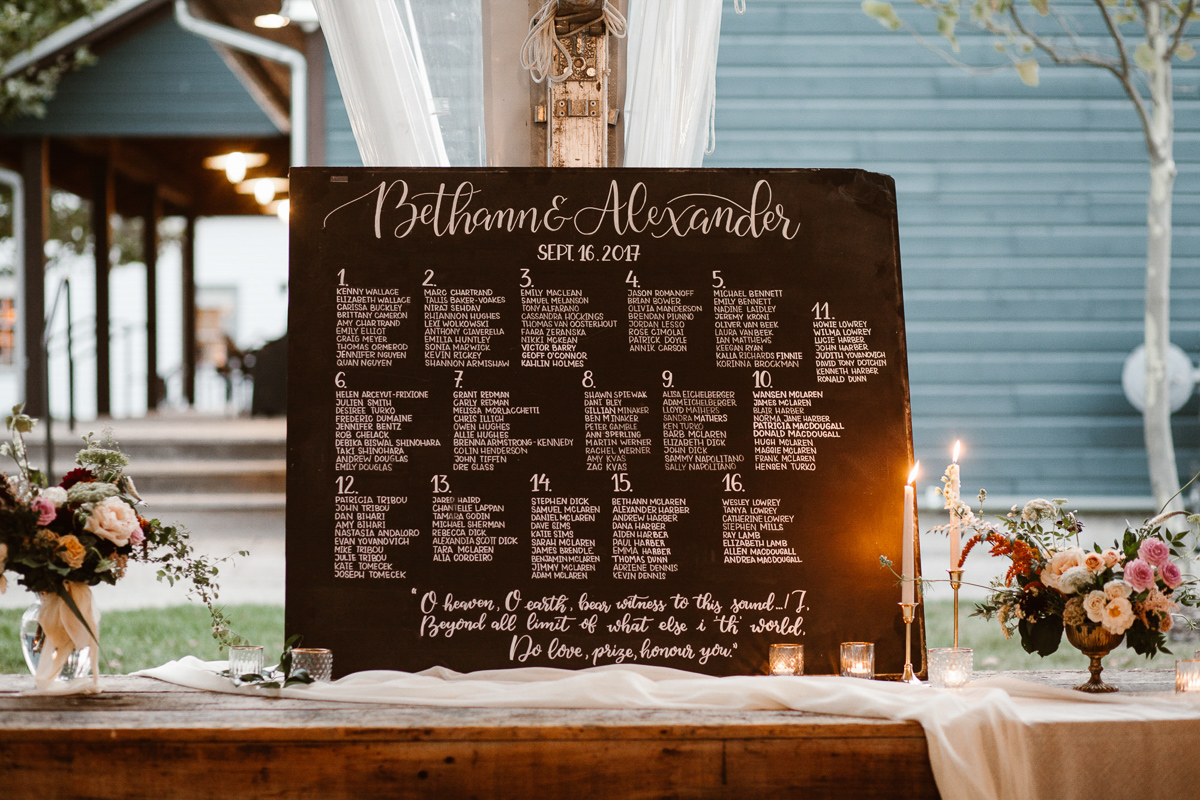 Bethann & Alexander
SEPT. 16. 2017
1.
KENNY WALLACE
ELIZABETH WALLACE
CARISSA BUCKLEY
BRITTANY CAMERON
AMY CHARTRAND
EMILY ELLIOT
CRAIG MEYER
THOMAS ORMEROD
JENNIFER NGUYEN
QUAN NGUYEN
2.
MARG CHARTRAND
TALLIS BAKER-VOAKES
NIRAJ SEHDAV
RHIANNON HUGHES
LEXI WOLKOWSKI
ANTHONY CIAVERELLA
EMILIA HUNTLEY
SONIA MARWICK
KEVIN RICKEY
SHANNON ARMISHAW
3.
EMILY MACLEAN
SAMUEL MELANSON
TONY ALFARANO
CASSANDRA HOCKINGS
THOMAS VAN OOSTERHOUT
FAARA ZERANSKA
NIKKI MCKEAN
VICTOR BARRY
GEOFF O'CONNOR
KAHLIN HOLMES
4.
JASON ROMANOFF
BRIAN BOWER
OLIVIA MANDERSON
BRENDAN PIUNNO
JORDAN LESSO
ROSE CIMOLAI
PATRICK DOYLE
ANNIK CARSON
5.
MICHAEL BENNETT
EMILY BENNETT
NADINE LAIDLEY
JEREMY KRONI
OLIVER VAN BEEK
LAURA VAN BEEK
IAN MATTHEWS
KEEGAN RYAN
KALLA RICHARDS FINNIE
KORINNA BROCKMAN
11.
HOWIE LOWREY
WILMA LOWREY
LUCIE HARBER
JOHN HARBER
JUDITH YOVANOVICH
DAVID TONY DOTCHIN
KENNETH HARBER
RONALD DUNN
6.
HELEN ARCEYUT-FRIXIONE
JULIEN SMITH
DESIREE TURKO
FREDERIC DUMAINE
JENNIFER BENTZ
ROB CHELACK
DEBIKA BISWAL SHINOHARA
TAKI SHINOHARA
ANDREW DOUGLAS
EMILY DOUGLAS
7.
GRANT REDMAN
CARLY REDMAN
MELISSA MORLACCHETTI
CHRIS ILLICH
OWEN HUGHES
ALLIE HUGHES
BRENNA ARMSTRONG-KENNEDY
COLIN HENDERSON
JOHN TIFFIN
DRE GLASS
8.
SHAWN SPIEWAK
DANI BLEY
GILLIAN MINAKER
BEN MINAKER
PETER GAMBLE
ANN SPERLING
MARTIN WERNER
RACHEL WERNER
AMY KVAS
ZAC KVAS
9.
ALISA EICHELBERGER
ADAM EICHELBERGER
LLOYD MATHERS
SANDRA MATHERS
KEN TURKO
BARB MCLAREN
ELIZABETH DICK
JOHN DICK
SAMMY NAPOLITANO
SALLY NAPOLITANO
10.
WANSEN MCLAREN
JAMES MCLAREN
BLAIR HARBER
NORMA JANE HARBER
PATRICIA MACDOUGALL
DONALD MACDOUGALL
HUGH MCLAREN
MAGGIE MCLAREN
FRANK MCLAREN
HENSEN TURKO
12.
PATRICIA TRIBOU
JOHN TRIBOU
DAN BIHARI
AMY BIHARI
NASTASIA ANDALORO
EVAN YOVANOVICH
MIKE TRIBOU
JULIE TRIBOU
KATE TOMECEK
JOSEPH TOMECEK
13.
JARED HAIRD
CHANTELLE LAPPAN
TAMARA GODIN
MICHAEL SHERMAN
REBECCA DICK
ALEXANDIA SCOTT DICK
TARA MCLAREN
ALIA CORDEIRO
14.
STEPHEN DICK
SAMUEL MCLAREN
DANIEL MCLAREN
DAVE SIMS
KATIE SIMS
SARAH MCLAREN
JAMES BRENDLE
BENJAMIN MCLAREN
JIMMY MCLAREN
ADAM MCLAREN
15.
BETHANN MCLAREN
ALEXANDER HARBER
ANDREW HARBER
DANA HARBER
AIDEN HARBER
PAUL HARBER
EMMA HARBER
THOMAS DUNN
ADRIENE DENNIS
KEVIN DENNIS
16.
WESLEY LOWREY
TANYA LOWREY
CATHERINE LOWREY
STEPHEN MILLS
RAY LAMB
ELIZABETH LAMB
ALLEN MACDOUGALL
ANDREA MACDOUGALL
"O heaven, O earth, bear witness to this sound...! I,
Beyond all limit of what else i th' world,
Do love, prize, honour you."